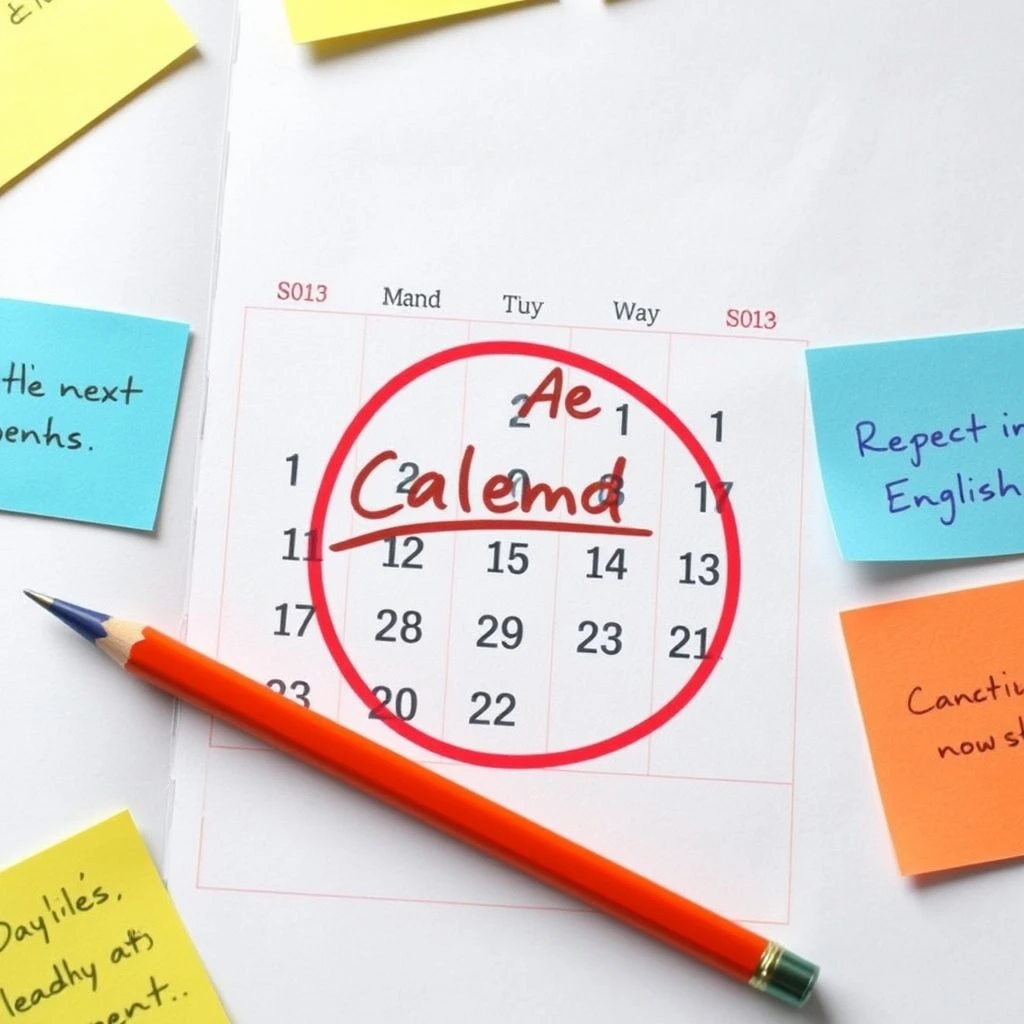 S013 Mand Tuy Way S013
Ae
2 1 1
Calemd
1 2 17
11 12 15 14 13
17 28 29 23 21
23 20 22
the next
Repect in
English
now
Daylilés.
leadhy ats